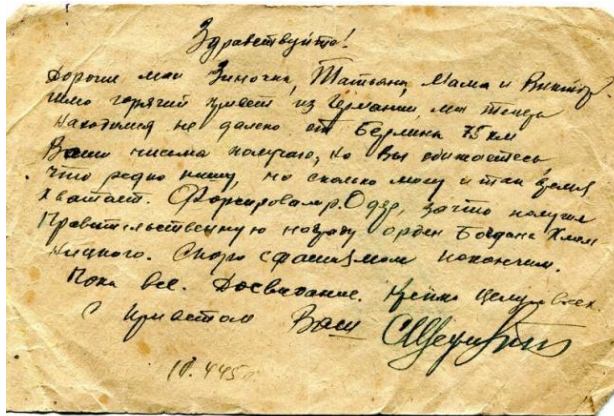 Здравствуйте!
Дорогие мои Зиночка, Татьяна, Мама и Виктор.
Шлю горячий привет из Германии, мы теперь
находимся не далеко от Берлина 75 км
Ваши письма получаю, но Вы обижаетесь
что редко пишу, но сколько могу и так время
хватает. Форсировал р. Одер, за что получил
Правительственную награду орден Богдана Хмель
ницкого. Скоро с фашизмом покончим.
Пока все. Досвидание. Крепко целую всех.
С приветом Ваш